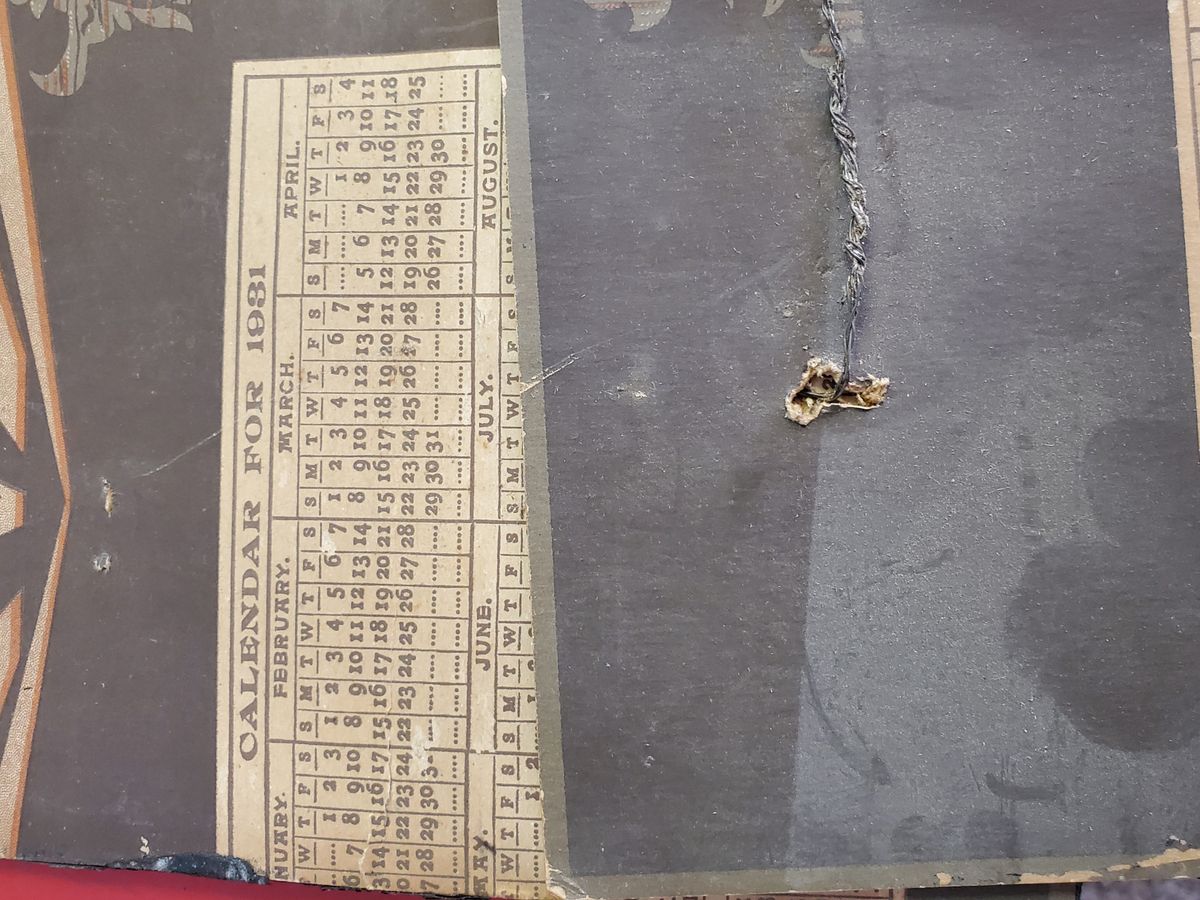 CALENDAR FOR 1931
NUARY. FEBRUARY. MARCH. APRIL.
W T F S S M T W T F S S M T W T F S S M T W T F S
.... 1 2 3 1 2 3 4 5 6 7 1 2 3 4 5 6 7 .... .... .... 1 2 3 4
6 7 8 9 10 8 9 10 11 12 13 14 8 9 10 11 12 13 14 5 6 7 8 9 10 11
3 14 15 16 17 15 16 17 18 19 20 21 15 16 17 18 19 20 21 12 13 14 15 16 17 18
0 21 22 23 24 22 23 24 25 26 27 28 22 23 24 25 26 27 28 19 20 21 22 23 24 25
7 28 29 30 3 .... .... .... .... .... .... .... 29 30 31 .... .... .... .... 26 27 28 29 30 .... ....
MAY. JUNE. JULY. AUGUST.
W T F S S M T W T F S S M T W T F S S M
.... .... 1 2